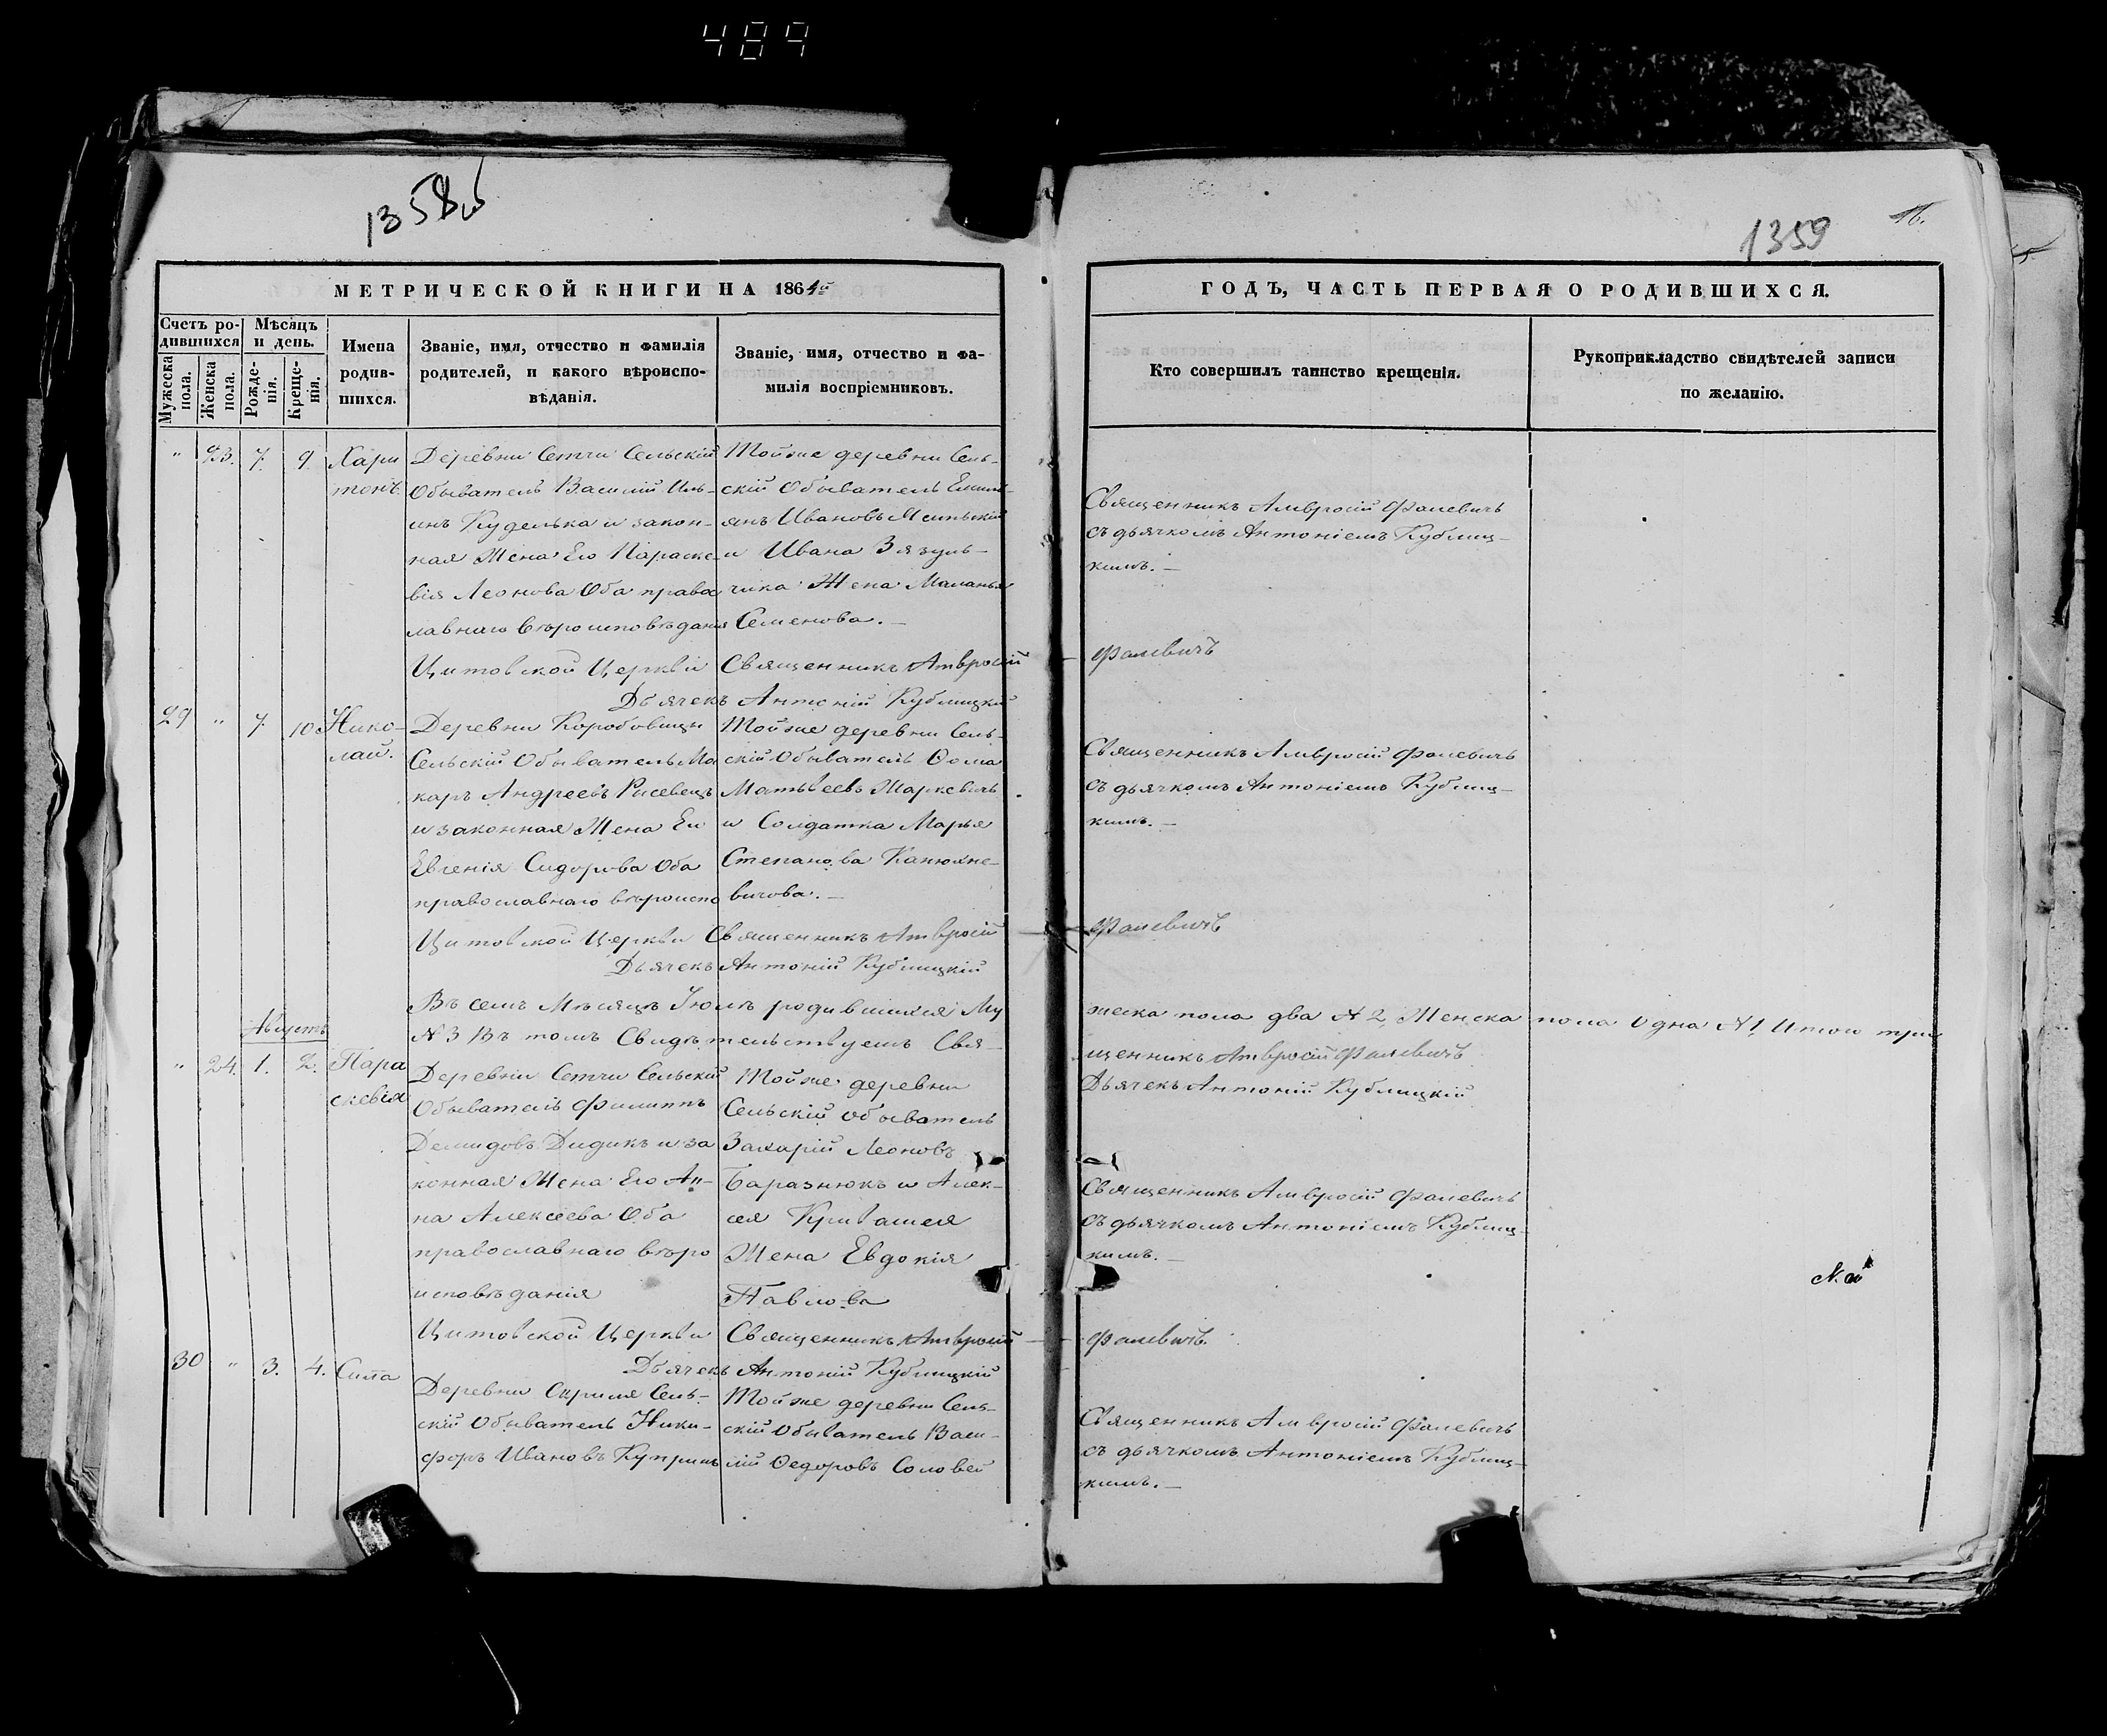 489
1358
1359
16.
МЕТРИЧЕСКОЙ КНИГИ НА 1864й
ГОДЪ, ЧАСТЬ ПЕРВАЯ О РОДИВШИХСЯ.
Счетъ ро-
дившихся
Мужеска пола.
Женска пола.
Мѣсяцъ
и день.
Рожде-
нія.
Креще-
нія.
Имена
родив-
шихся.
Званіе, имя, отчество и фамилія
родителей, и какого вѣроиспо-
вѣданія.
Званіе, имя, отчество и фа-
милія воспріемниковъ.
Кто совершилъ таинство крещенія.
Рукоприкладство свидѣтелей записи
по желанію.
" 23. 7. 9. Хари
тонъ.
Деревни Сетчи Сельскій
Обыватель Василій Иль-
инъ Куделька и закон-
ная Жена Его Параске-
вія Леонова Оба правос
лавнаго вѣроисповѣданія
Тойже деревни Сель-
скій Обыватель Емиль-
янъ Ивановъ
и Ивана Зязуль-
чика Жена Маланья
Семенова.
Священникъ Амвросій Фалевичь
съ дьячкомъ Антоніемъ Кублиц-
кимъ.
Цитовской Церкви Священникъ Амвросій Фалевичъ
Дьячекъ Антоній Кублицкій
29 " 7. 10. Нико-
лай.
Деревни Коробовцы
Сельскій Обыватель Ма
каръ Андреевъ Рисевецъ
и законная Жена Его
Евгенія Сидорова Оба
православнаго вѣроиспо
Тойже деревни Сель-
скій Обыватель Ѳома
Матвѣевъ Жаркевичь
и Солдатка Марья
Степанова Канюхне-
вичова.
Священникъ Амвросій Фалевичь
съ дьячкомъ Антоніемъ Кублиц-
кимъ.
Цитовской Церкви Священникъ Амвросій Фалевичъ
Дьячекъ Антоній Кублицкій
Въ семъ Мѣсяцѣ Іюлѣ родившихся Му жеска пола два N 2, Женска пола Одна N 1, Итого три
N 3 Въ томъ Свидѣтельствуемъ Свя- щенникъ Амвросій Фалевичъ
Дьячекъ Антоній Кублицкій
Августъ
" 24. 1. 2. Пара
скевія
Деревни Сетчи Сельскій
Обыватель Филиппъ
Демидовъ Дидикъ и за
конная Жена Его Ан-
на Алексеева Оба
православнаго вѣро
исповѣданія
Тойже деревни
Сельскій Обыватель
Захарій Леоновъ
Баразнюкъ и Алек-
сея Кривашея
Жена Евдокія
Павлова
Священникъ Амвросій Фалевичь
съ дьячкомъ Антоніемъ Кублиц-
кимъ.
Цитовской Церкви Священникъ Амвросій Фалевичъ.
Дьячекъ Антоній Кублицкій
30 " 3. 4. Сила
Деревни Скрили Сель-
скій Обыватель Ники-
форъ Ивановъ Купринъ
Тойже деревни Сель-
скій Обыватель Васи-
лій Ѳедоровъ Соловей
Священникъ Амвросій Фалевичь
съ дьячкомъ Антоніемъ Кублиц-
кимъ.